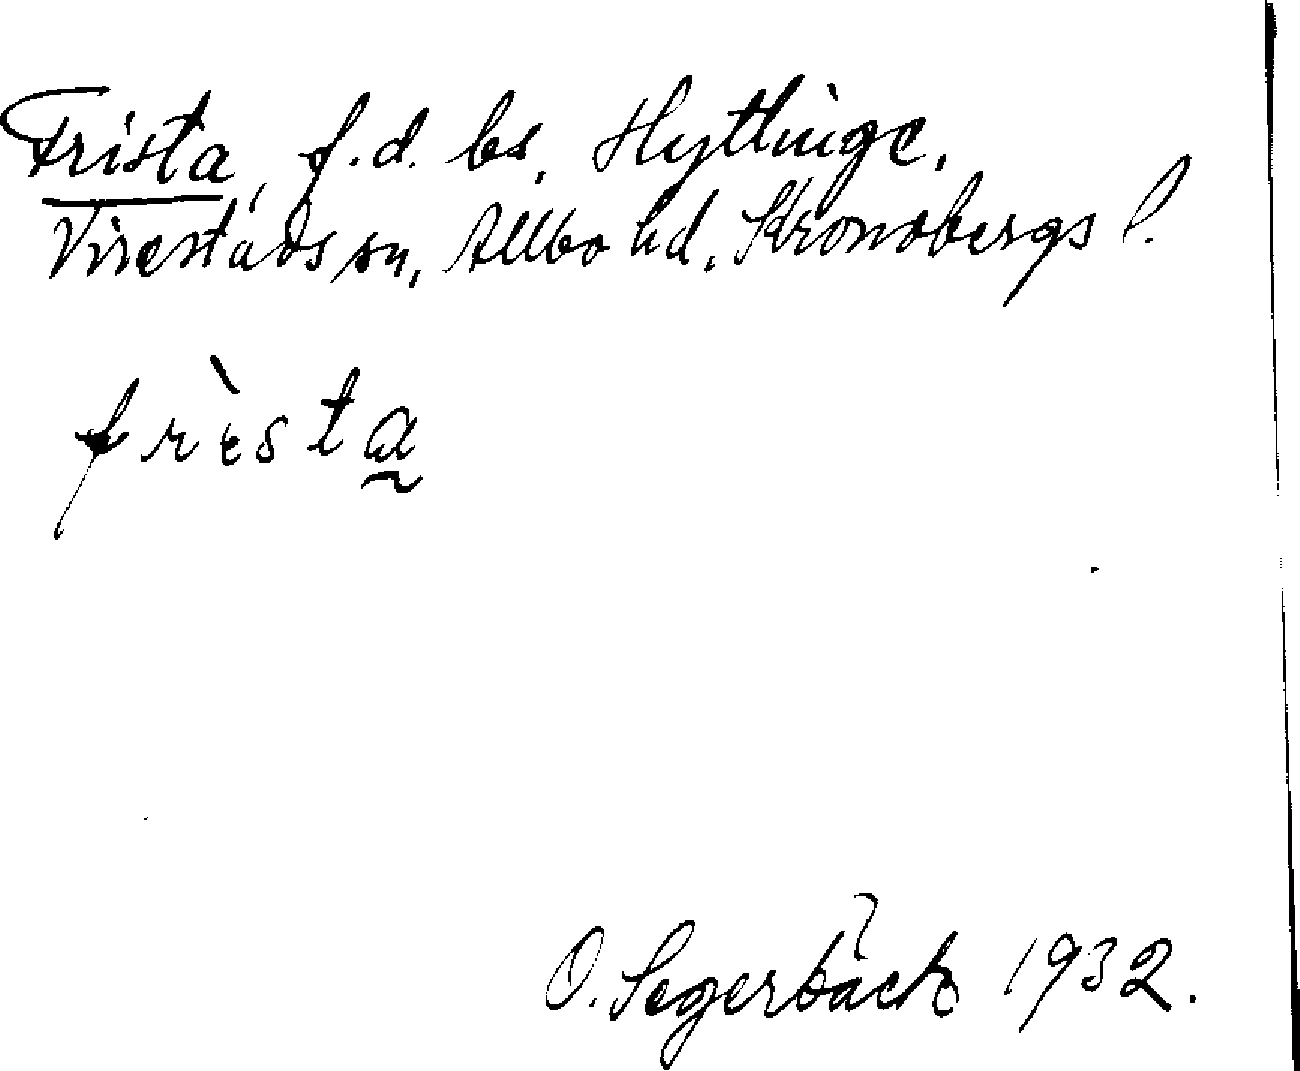 Frista, f.d. bs, Hyttinge,
Virestads sn, Allbo hd, Kronobergs l.
frèsta
O. Segerbäck 1932.